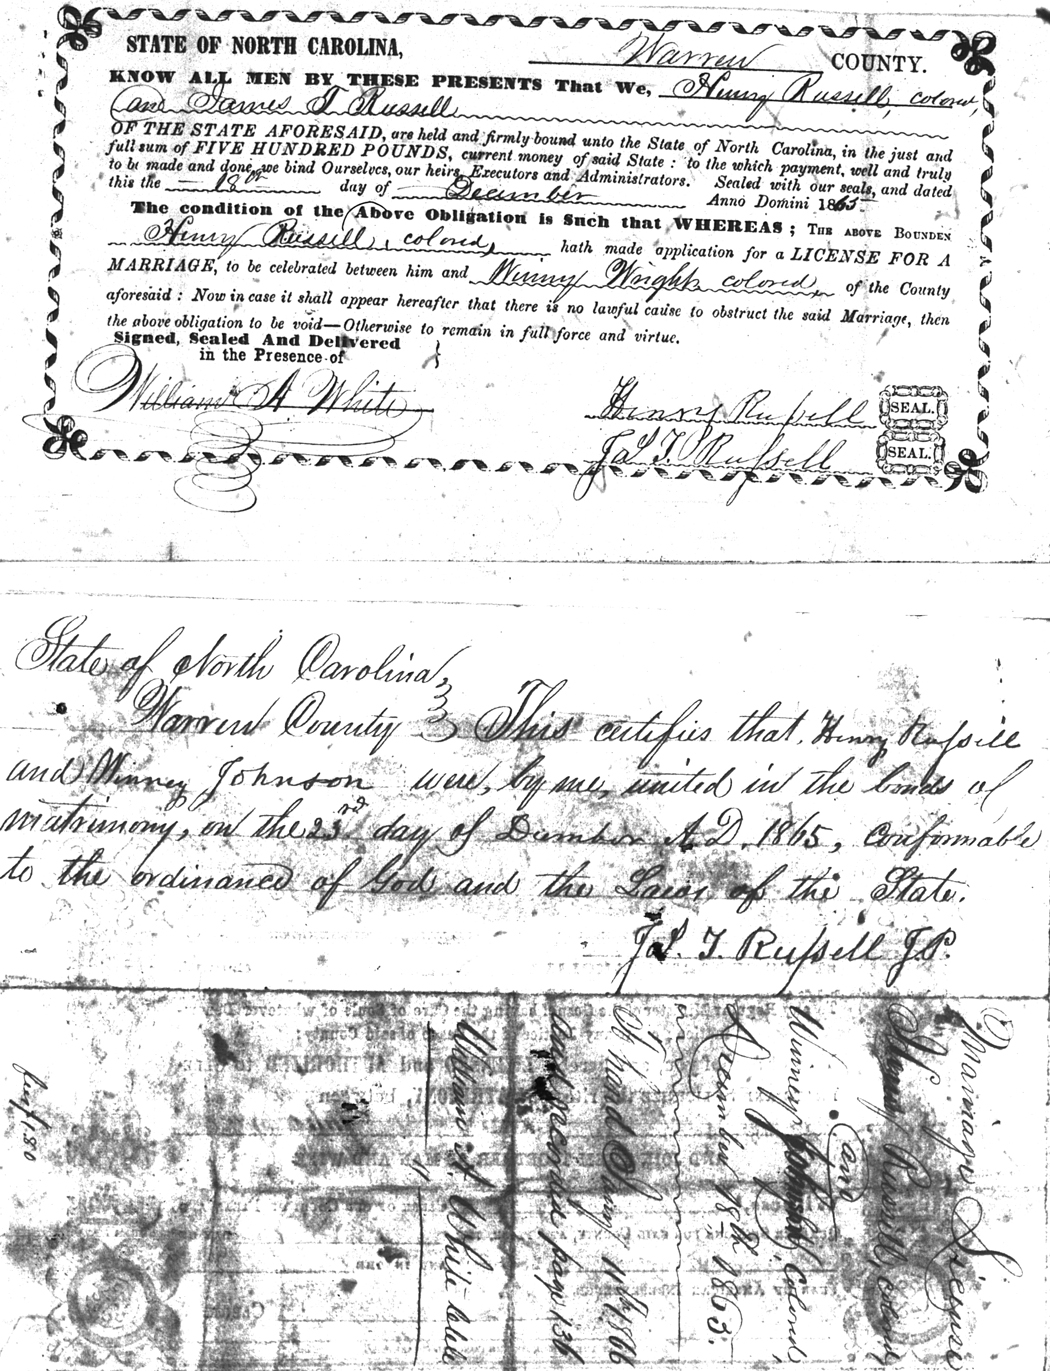 STATE OF NORTH CAROLINA, Warren COUNTY.
KNOW ALL MEN BY THESE PRESENTS That We, Henry Russell, colored,
and James T. Russell
OF THE STATE AFORESAID, are held and firmly bound unto the State of North Carolina, in the just and
full sum of FIVE HUNDRED POUNDS, current money of said State: to the which payment, well and truly
to be made and done, we bind Ourselves, our heirs, Executors and Administrators. Sealed with our seals, and dated
this the 18th day of December Anno Domini 1865
The condition of the Above Obligation is Such that WHEREAS; THE ABOVE BOUNDEN
Henry Russell, colored, hath made application for a LICENSE FOR A
MARRIAGE, to be celebrated between him and Winny Wright colored, of the County
aforesaid: Now in case it shall appear hereafter that there is no lawful cause to obstruct the said Marriage, then
the above obligation to be void—Otherwise to remain in full force and virtue.
Signed, Sealed And Delivered
in the Presence of }
William A White
Henry Russell SEAL.
Jas. T. Russell SEAL.
State of North Carolina,
Warren County } This certifies that, Henry Russell
and Winney Johnson were, by me, united in the bonds of
matrimony, on the 23rd day of December A.D. 1865, conformable
to the ordinance of God and the Laws of the State.
Jas. T. Russell J.P.
Marriage License
Of Henry Russell, colored
and
Winney Johnson, Colored,
December 18th 1865.
11th 1866
and recorded page 136
William A White